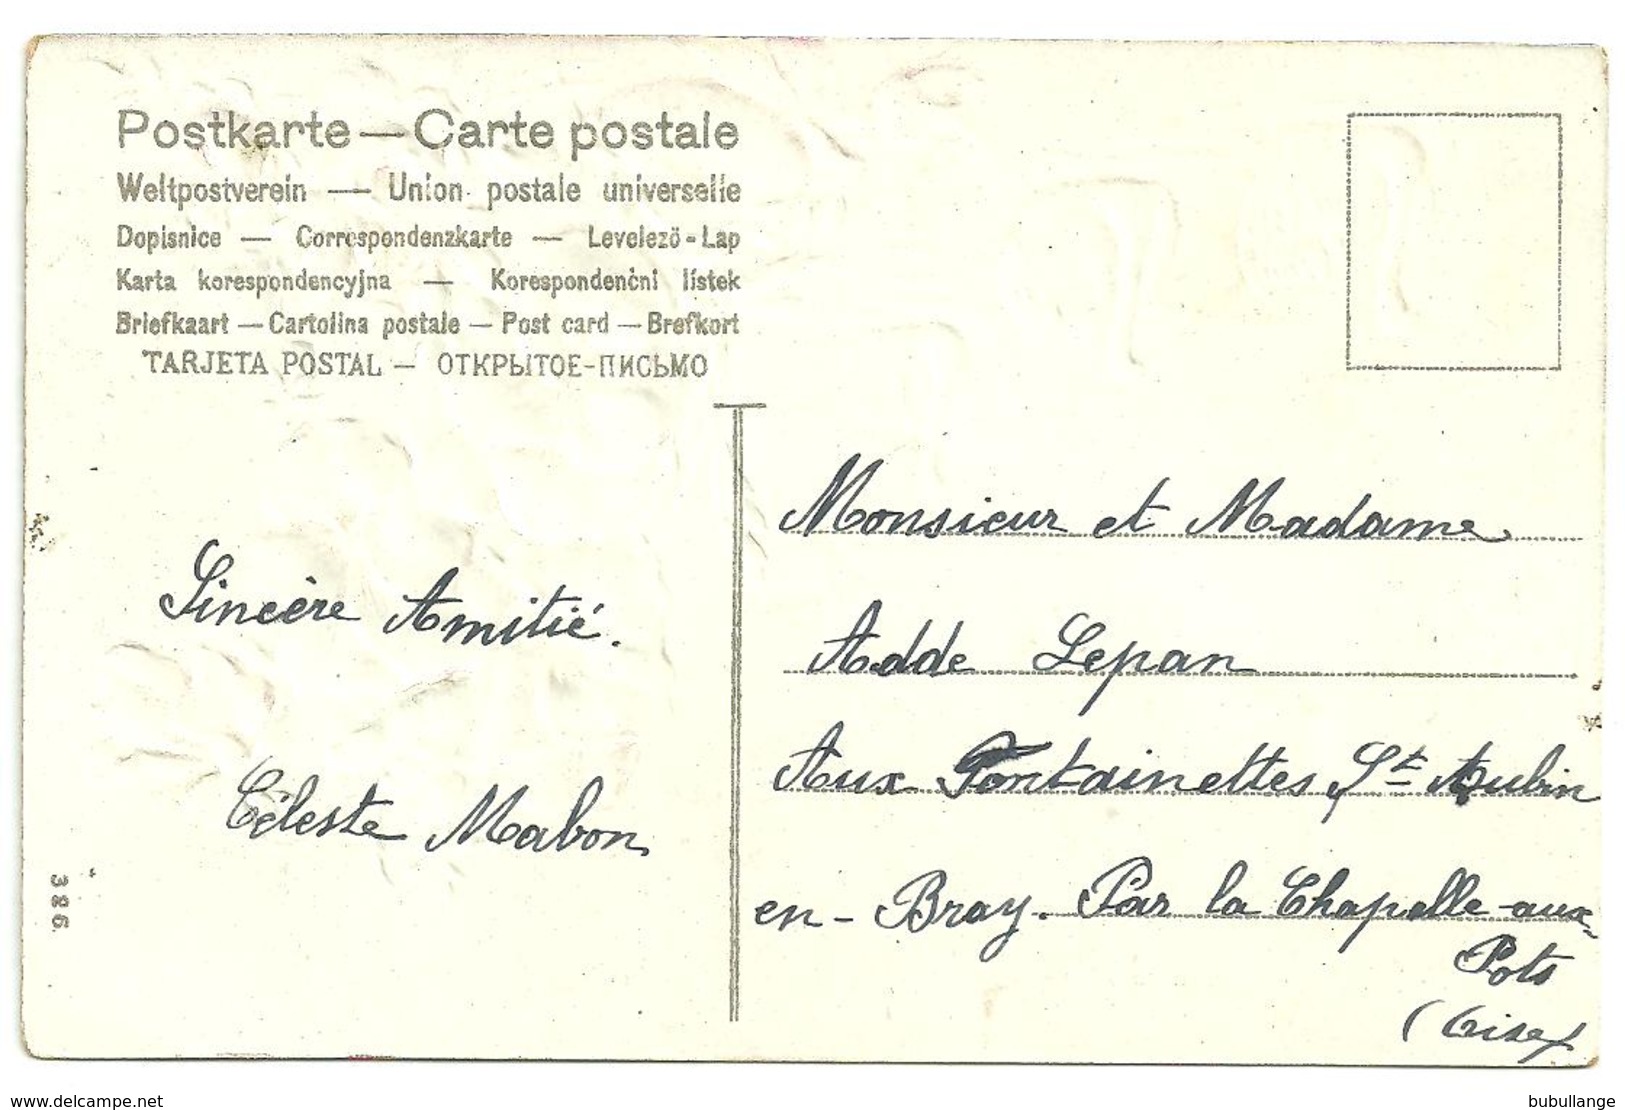 Postkarte — Carte postale
Weltpostverein — Union postale universelle
Dopisnice — Correspondenzkarte — Levelező-Lap
Karta korespondencyjna — Korespondenční lístek
Briefkaart — Cartolina postale — Post card — Brefkort
TARJETA POSTAL — ОТКРЫТОЕ-ПИСЬМО
Sincère Amitié.
Céleste Mabon
386
Monsieur et Madame
Adde Lepan
Aux Fontainettes St Aubin
en-Bray. Par la Chapelle-aux-
Pots
(Oise)
www.delcampe.net
bubullange